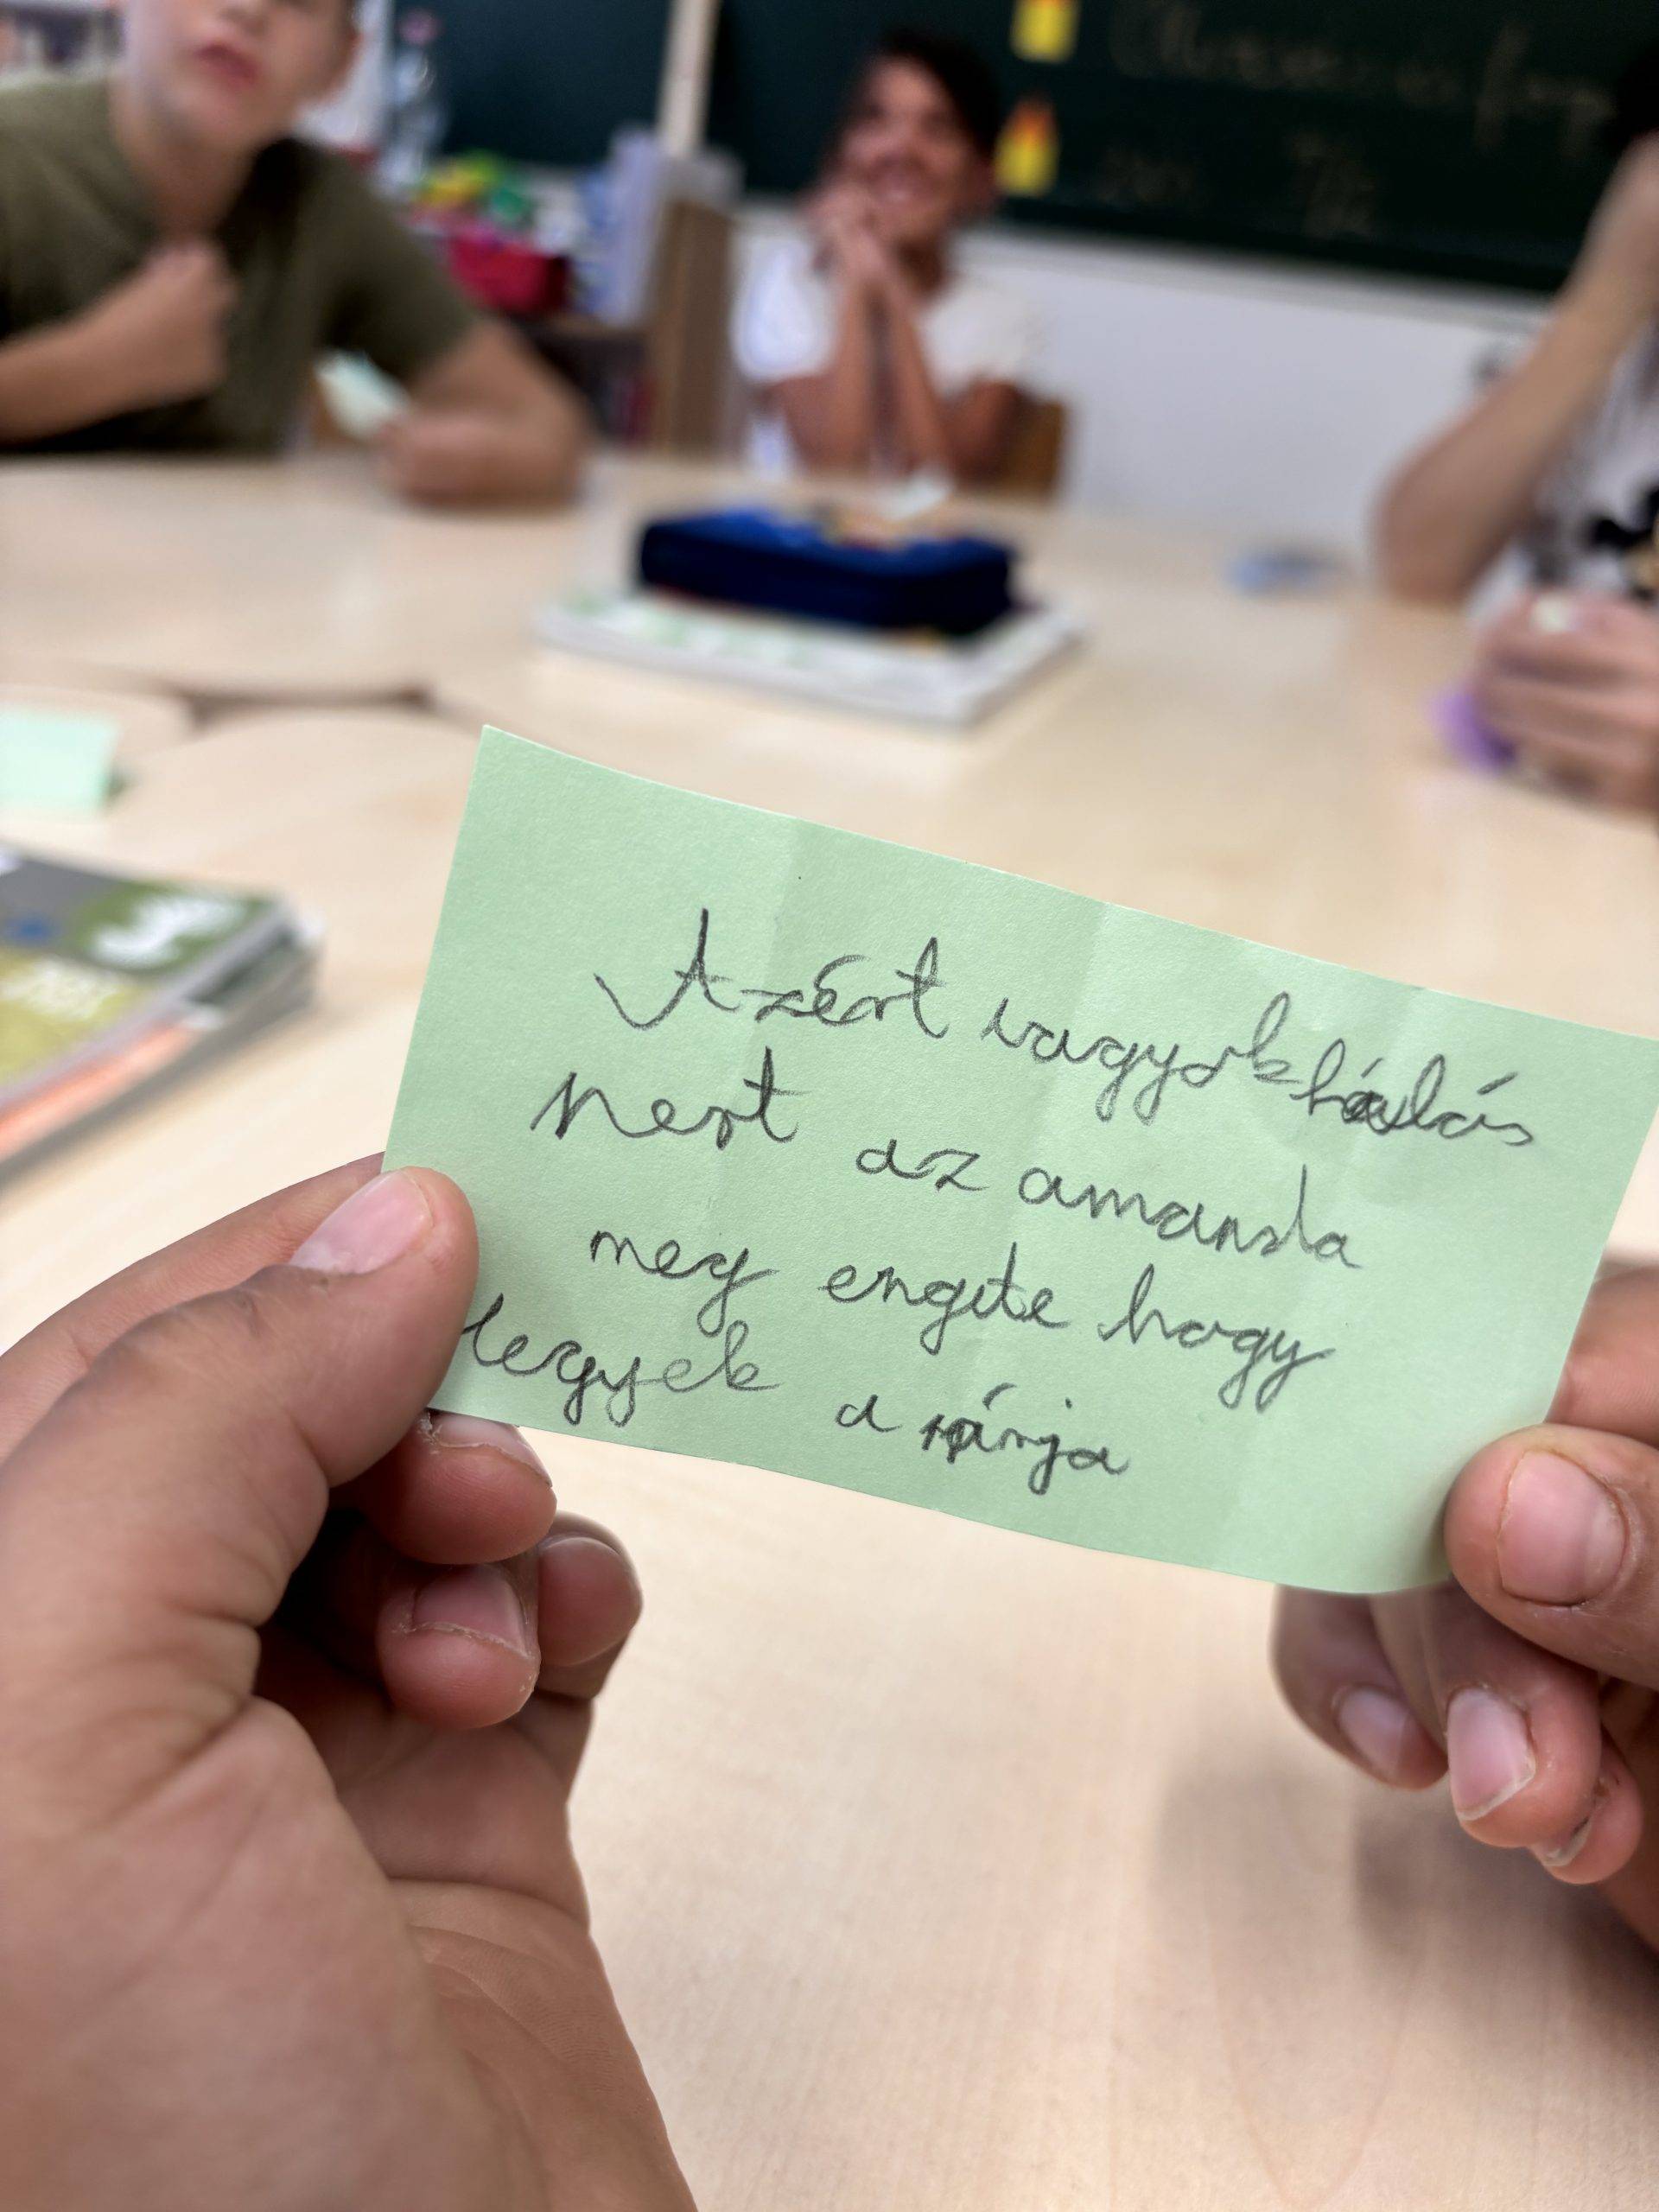 Azért vagyok hálás
Mert az amanda
meg engete hogy
legyek a párja